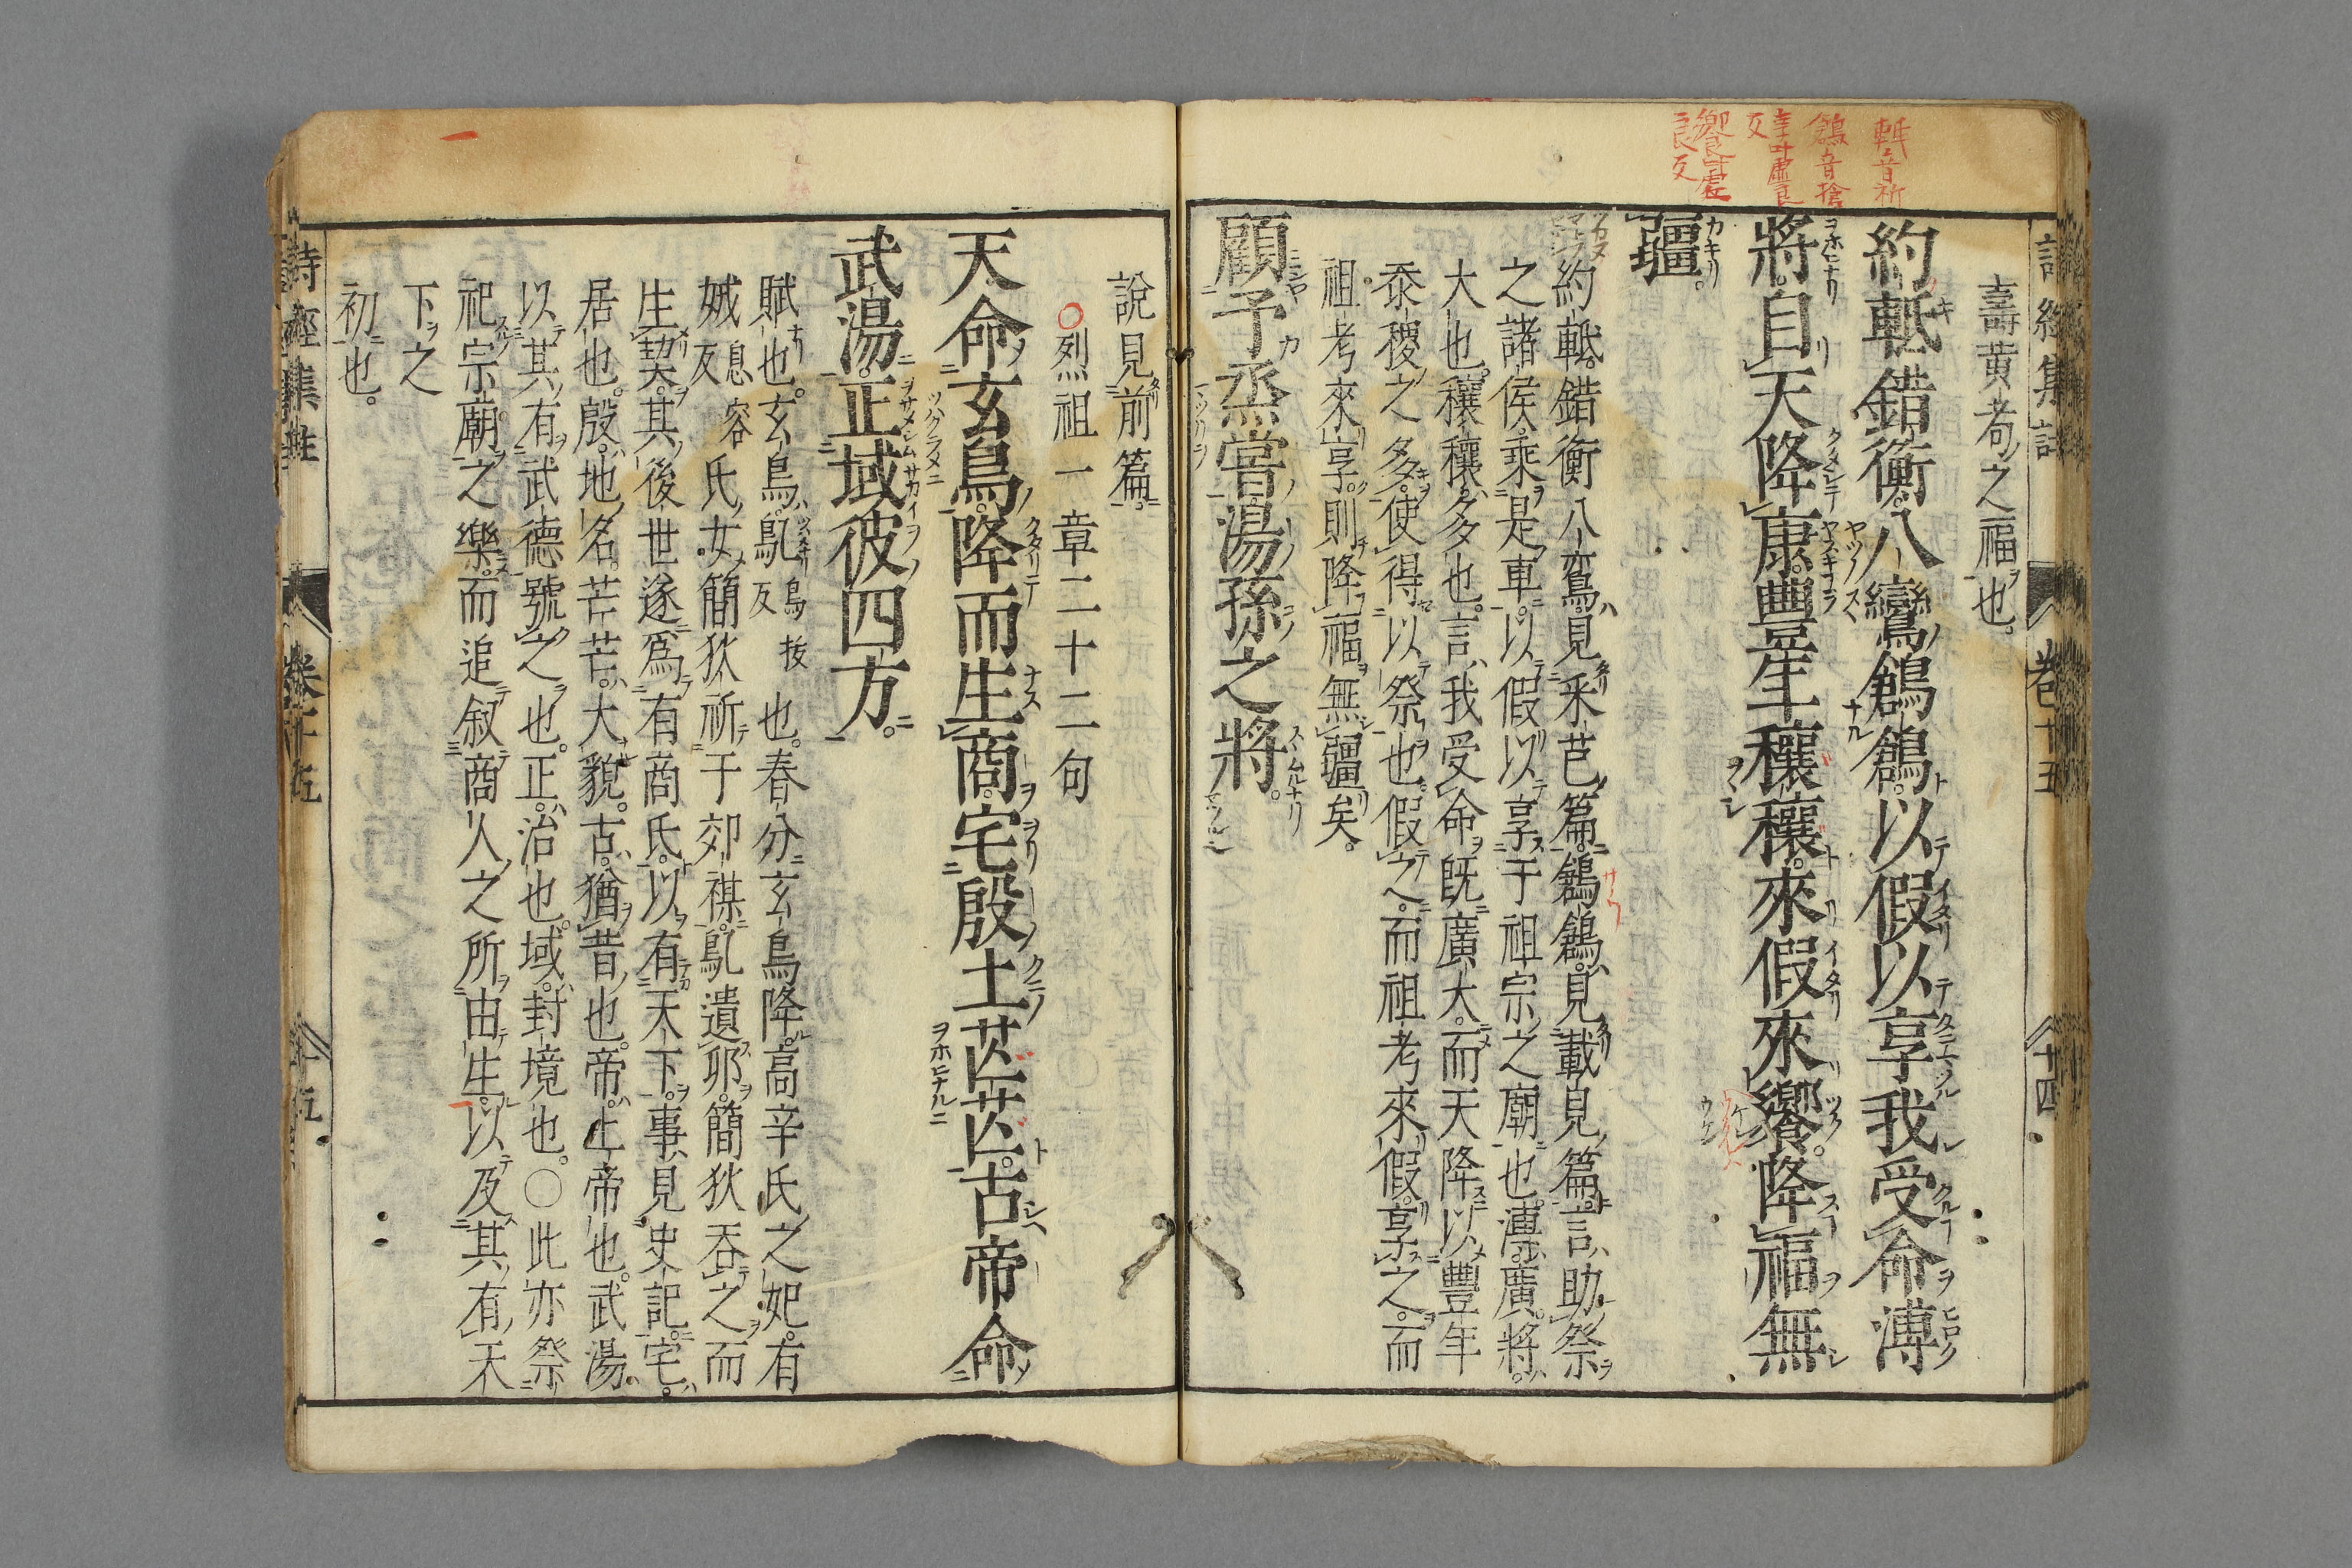 軝音祈
鶬音搶
享叶虛良
反
饗叶虛
良反
詩經集註 卷十五 十四
壽黄耇之福也。
約軝錯衡。八鸞鶬鶬。以假以享。我受命溥
將。自天降康。豐年穰穰。來假來饗。降福無
疆。
約軝。錯衡八鸞。見采芑篇。鶬鶬。見載見篇。言助祭
之諸侯。乘是車。以假以享于祖宗之廟也。溥。廣。將。
大也。穰穰。多也。言我受命既廣大。而天降以豐年
黍稷之多。使得以祭也。假之。而祖考來假。享之。而
祖考來享。則降福無疆矣。
顧予烝嘗。湯孫之將。
說見前篇。
○烈祖一章二十二句
天命玄鳥。降而生商。宅殷土芒芒。古帝命
武湯。正域彼四方。
賦也。玄鳥。鳦也。春分玄鳥降。高辛氏之妃。有
鳥拔
反
娀氏女簡狄。祈于郊禖。鳦遺卵。簡狄吞之。而
息容
反
生契。其後世遂爲有商氏。以有天下。事見史記。宅。
居也。殷。地名。芒芒。大貌。古。猶昔也。帝。上帝也。武湯。
以其有武德號之也。正。治也。域。封境也。○此亦祭
祀宗廟之樂。而追叙商人之所由生。以及其有天
下之
初也。
詩經集註 卷十五 十五